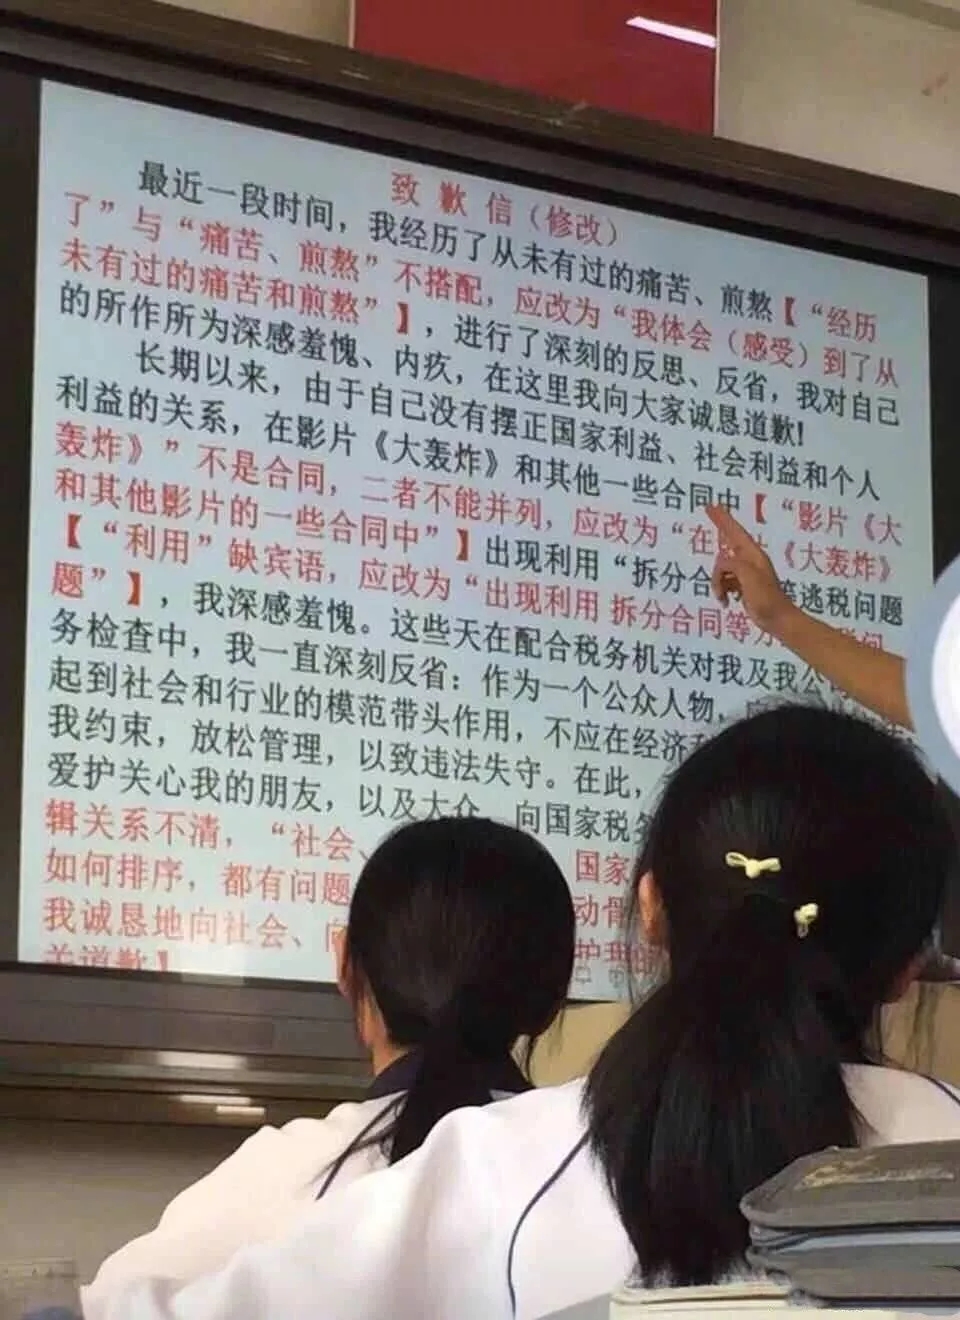 致歉信（修改）
最近一段时间，我经历了从未有过的痛苦、煎熬【“经历
了”与“痛苦、煎熬”不搭配，应改为“我体会（感受）到了从
未有过的痛苦和煎熬”】，进行了深刻的反思、反省，我对自己
的所作所为深感羞愧、内疚，在这里我向大家诚恳道歉！
长期以来，由于自己没有摆正国家利益、社会利益和个人
利益的关系，在影片《大轰炸》和其他一些合同中【“影片《大
轰炸》”不是合同，二者不能并列，应改为“在 《大轰炸》
和其他影片的一些合同中”】出现利用“拆分合 等逃税问题
【“利用”缺宾语，应改为“出现利用 拆分合同等
题”】，我深感羞愧。这些天在配合税务机关对我及我公
务检查中，我一直深刻反省：作为一个公众人物，
起到社会和行业的模范带头作用，不应在经济
我约束，放松管理，以致违法失守。在此，
爱护关心我的朋友，以及大众 向国家税
辑关系不清，“社会、 国家
如何排序，都有问题 动
我诚恳地向社会、
关道歉】